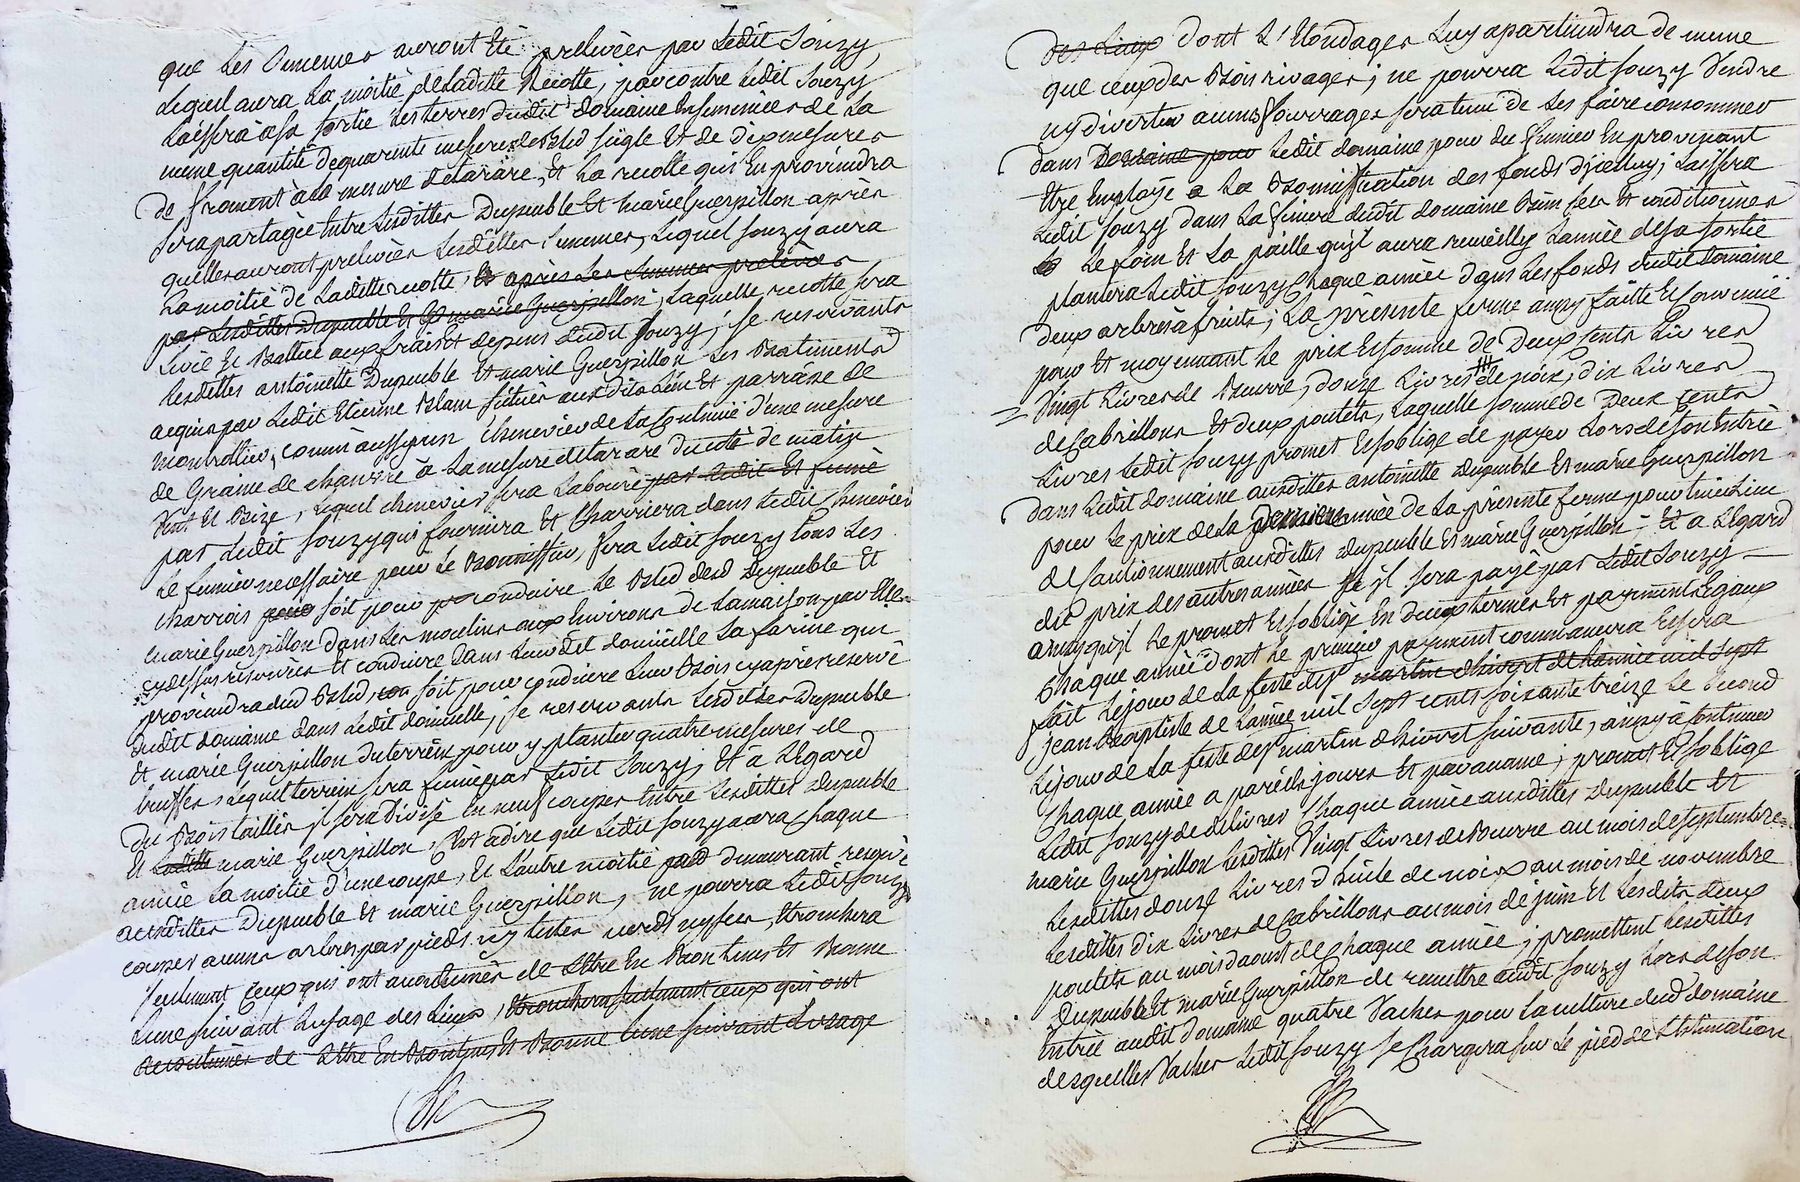 que les semences auront été prelevées par ledit Souzy,
lequel aura la moitié de laditte Recolte, par contre ledit Souzy
laissera à sa sortie les terres dudit domaine ensemencées de la
meme quantité de quarante mesures de Bled seigle et de dix mesures
de froment à la mesure de tarare, et la recolte qui en proviendra
sera partagée entre lesdittes Dupeuble et marie Guerpillon apres
quelles auront prelevées lesdittes semences, lequel Souzy aura
la moitié de laditte recolte, et après les semences prelevées
par lesdittes Dupeuble et marie Guerpillon, laquelle recolte sera
levée et Battue aux frais et depens dudit Souzy; se reservants
lesdittes antoinette Dupeuble et marie Guerpillon les Batiments
acquis par ledit Etienne Blanc situés auxdits lieu et parroisse de
montrottier, comm'aussy un chenevier de la contenue d'une mesure
de Graine de chanvre à la mesure de tarare du coté de matin
vent et Bize, lequel chenevier sera labouré par ledit et fumé
par ledit Souzy qui fournira et charriera dans ledit chenevier
le fumier necessaire pour le Bonniffier, fera ledit Souzy tous les
charrois pour soit pour conduire le Bled desd Dupeuble et
marie Guerpillon dans les moulins aux Environs de la maison par elles
cydessus reservées et conduire dans leurdit domicille la farine qui
proviendra dud Bled, soit pour conduire leur Bois cyaprès reservé
dudit domaine dans ledit domicille, se reservants lesdittes Dupeuble
et marie Guerpillon du terrein pour y planter quatre mesures de
truffes, lequel terrein sera fumé par ledit Souzy, et à l'egard
du Bois taillis il sera divisé en neuf coupes entre lesdittes Dupeuble
et ladite marie Guerpillon, c'est adire que ledit Souzy aura chaque
année la moitié d'une coupe, et l'autre moitié demeurant reservée
auxdittes Dupeuble et marie Guerpillon, ne pourra ledit Souzy
couper aucuns arbres par pieds ny testes verds ny secs, Ebranchera
seulement ceux qui ont accoutumés de l'être en Bon tems et Bonne
lune suivant lusage des lieux, Ebranchera seulement ceux qui ont
accoutumés de l'être en Bon tems et Bonne lune suivant lusage
des lieux dont l'Elondages luy apartiendra de meme
que ceux des Bois rivages; ne pourra ledit Souzy vendre
ny divertir aucuns fourrages sera tenu de les faire consommer
dans Domaine pour ledit domaine pour du fumier en provenant
Etre Employé a la Bonniffication des fonds d'jcelluy; laissera
ledit Souzy dans la feniere dudit domaine Bien secs et conditionnés
le foin et la paille qu'jl aura receuilly l'année de sa sortie
plantera ledit Souzy chaque année dans les fonds dudit Domaine
deux arbres à fruits; la presente ferme ainsy faitte et convenüe
pour et moyennant le prix et somme de Deux cents livres
vingt livres de Beurre, douze livres de noix, dix livres
de Cabrillons et deux poulets, laquelle somme de Deux cents
livres ledit Souzy promet et s'oblige de payer lors de son Entrée
dans ledit domaine auxdittes antoinette Dupeuble et marie Guerpillon
pour le prix de la derniere année de la presente ferme pour tenir lieu
de Cautionnement auxdittes Dupeuble et marie Guerpillon; et a l'egard
dud prix des autres années jl sera payé par ledit Souzy
ainsy qu'jl le promet et s'oblige en deux termes et payements Egaux
chaque année dont le premier payement commancera et sera
fait le jour de la feste de St martin d'hivert de l'année mil sept
jean Baptiste de l'année mil sept cents soixante treize le second
le jour de la feste de St martin d'hivert suivante, ainsy à continuer
chaque année a pareils jours et par avance; promet et s'oblige
ledit Souzy de delivrer chaque année auxdittes Dupeuble et
marie Guerpillon lesdittes vingt livres de Beurre au mois de septembre
lesdittes douze livres d'huile de noix au mois de novembre
lesdittes dix livres de Cabrillons au mois de juin et lesdits deux
poulets au mois d'aoust de chaque année; promettent lesdittes
Dupeuble et marie Guerpillon de remettre audit Souzy lors de son
Entrée audit domaine quatre vaches pour la culture dud domaine
desquelles vaches ledit Souzy se Chargera sur le pied de l'Estimation